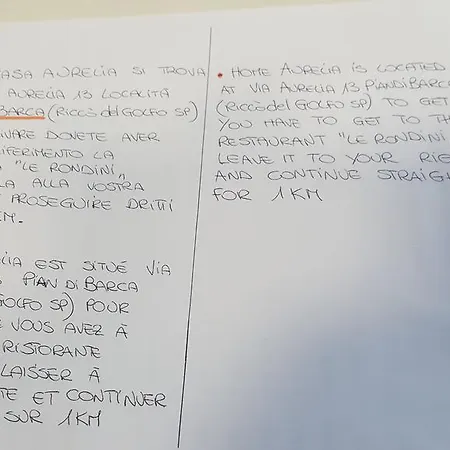 CASA AURELIA SI TROVA
AURELIA 13 LOCALITÀ
BARCA (RICCÒ del GOLFO SP)
DOVETE AVER
RIFERIMENTO LA
"LE RONDINI"
ALLA VOSTRA
PROSEGUIRE DRITTI
KM.
EST SITUÉ VIA
PIAN DI BARCA
GOLFO SP) POUR
VOUS AVEZ À
RISTORANTE
LAISSER À
ET CONTINUER
SUR 1KM
• HOME AURELIA IS LOCATED
AT VIA AURELIA 13 PIANDIBARCA
(RICCÒ del GOLFO SP) TO GET
YOU HAVE TO GET TO TH
RESTAURANT "LE RONDINI
LEAVE IT TO YOUR RIG
AND CONTINUE STRAIGH
FOR 1KM